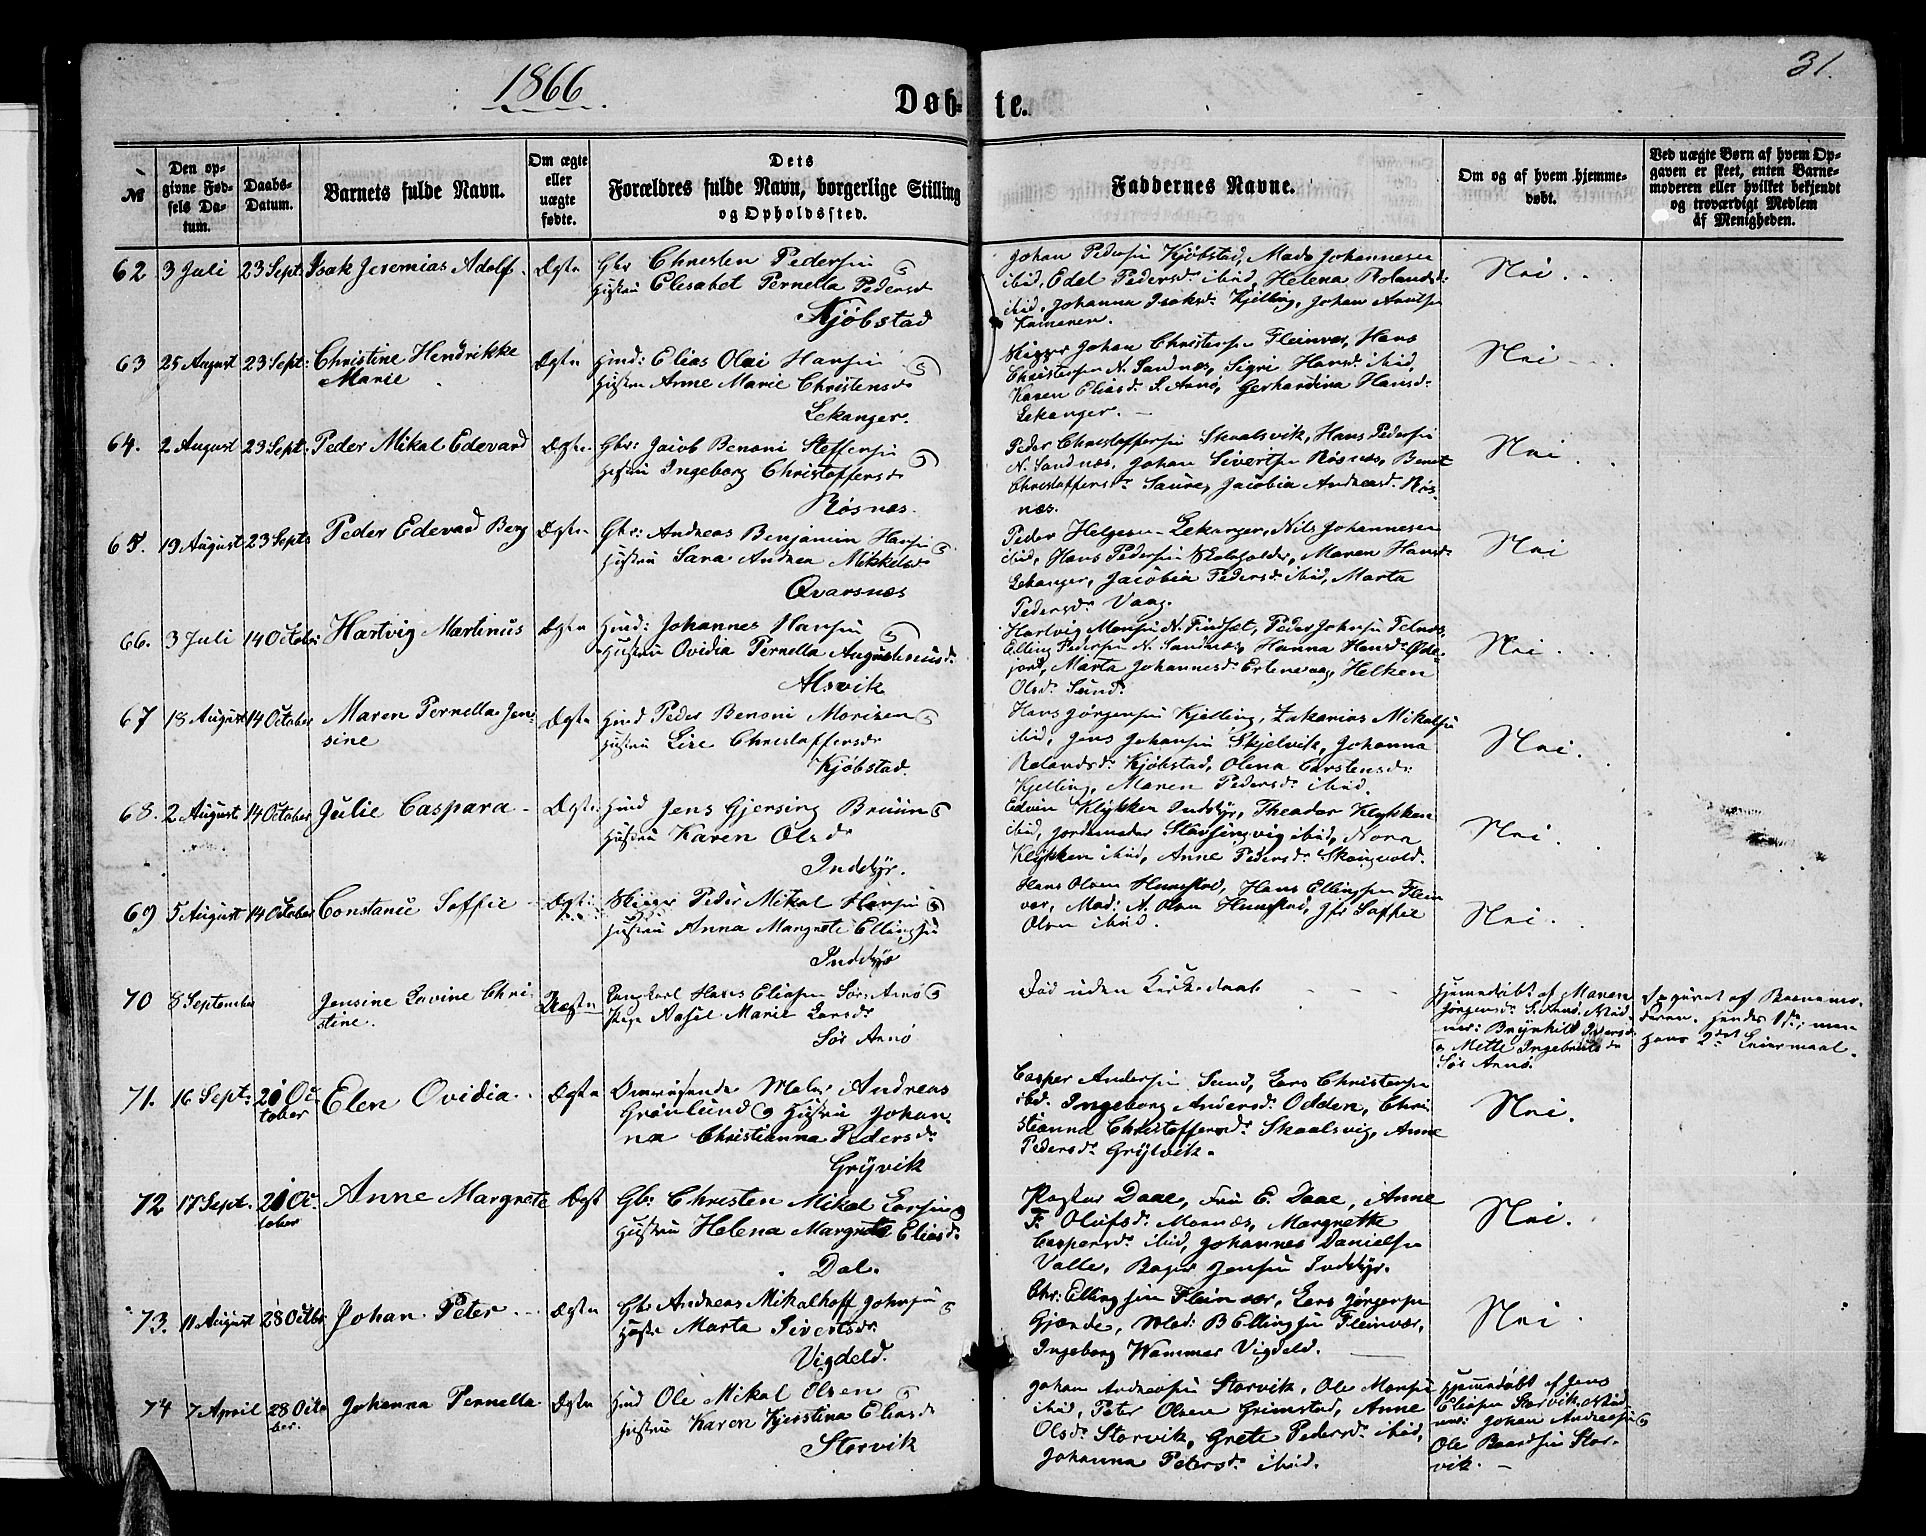 1866
31.
Døb- te.
№
Den op-
givne Fød-
sels Da-
tum.
Daabs-
Datum.
Barnets fulde Navn.
Om ægte
eller
uægte
fødte.
Dets
Forældres fulde Navn, borgerlige Stilling
og Opholdssted.
Faddernes Navne.
Om og af hvem hjemme-
døbt.
Ved uægte Børn af hvem Op-
gaven er skeet, enten Barne-
moderen eller hvilket bekjendt
og troværdigt Medlem
af Menigheden.
62 3 Juli 23 Sept: Isak Jeremias Adolf. Ægte
Gbr Christen Pedersen &
Hustru Elisabet Pernella Pedersd
Kjøbstad
Johan Pedersen Kjøbstad, Mads Johannesen
ibid, Edel Pedersd. ibid, Helena Rolandsd:
ibid, Johanna Isaksd. Kjelling, Johan Arntsen
Nei.
63 25 August 23 Sept: Christine Hendrikke
Marie
Ægte
Hmd: Elias Olai Hansen &
Hustru Anne Marie Christensd
Lekanger.
Skipper Johan Christensen Fleinvær, Hans
Christensen N. Sandnæs, Sigri Hansd. ibid,
Karen Eliasd. S. Arnø, Gerhardina Hansd.
Lekanger. —
Nei
64. 2 August 23 Sept: Peder Mikal Edevard Ægte
Gbr: Jacob Benoni Steffensen &
Hustru Ingeborg Christoffersd
Røsnæs.
Peder Christoffersen Skaalsvik, Hans Pedersen
N. Sandnæs, Johan Sivertsen Røsnæs, Beret
Christoffersd. Saura, Jacobia Andreasd. Røs-
næs.
Nei
65. 19 August 23 Sept: Peder Edevard Berg Ægte
Gbr: Andreas Benjamin Hansen &
Hustru Sara Andrea Mikkelsd
Qvarsnæs
Peder Helgesen Lekanger, Nils Johannesen
ibid, Hans Pedersen Skoleholder, Maren Hansd.
Lekanger, Jacobia Pedersd. ibid, Marta
Pedersd. Vaag.
Nei
66. 3 Juli 14 October Hartvig Martinus Ægte
Hmd: Johannes Hansen &
Hustru Ovidia Pernella Augustinusd.
Alsvik
Hartvig Monsen N. Finset, Peder Johnsen Felnes,
Elling Pedersen N. Sandnæs, Hanna Hansd.
Marta Johannesd. Helken
Olsd. Sund.
Nei.
67 18 August 14 October Maren Pernella Jen-
sine
Ægte
Hmd Peder Benoni Morisen &
Hustru Lise Christoffersd
Kjøbstad.
Hans Jørgensen Kjelling, Zakarias Mikalsen
ibid, Jens Johansen Skjelvik, Johanna
Rolandsd. Kjøbstad, Olena Carstensd:
Kjelling, Maren Pedersd. ibid.
Nei.
68. 2 August 14 October Julie Caspara Ægte
Hmd Jens Gjersing Bruun &
Hustru Karen Olsd
Inddyr.
Edvin Klykken Inddyr, Theador Klykken
ibid, Jordemoder ibid, Nora
Klykken ibid, Anne Pedersd. Skougvold.
Nei.
69 5 August 14 October Constance Soffie Ægte
Skipper Peder Mikal Hansen &
Hustru Anna Margrete Ellingsen
Inddyr
Hans Olsen Humstad, Hans Ellingsen Flein
vær, Mad: A. Olsen Humstad, Jfr Soffie
Olsen ibid.
Nei.
70 8 September Jensine Lovine Chri-
stine.
Uægte
Ungkarl Hans Eliasen Sør Arnø &
Pige Aasel Marie Larsd
Sør Arnø
Død uden Kirkedaab
Hjemmedøbt af Maren
Jørgensd. S. Arnø. Vid-
ner: Brynhild Iversd
& Mette Ingebrigtsd
Sør Arnø.
Angivet af Barnemo-
deren. Hendes 1ste, men
hans 2det Leiermaal.
71. 16 Sept: 21 Oc-
tober
Elen Ovidia Ægte
Omreisende Maler Andreas
Grønlund & Hustru Johan-
na Christianna Pedersd.
Grytvik
Casper Andersen Sund, Lars Christensen
ibd. Ingeborg Andersd. Odden, Chri-
stianna Christoffersd. Skaalsvig, Anne
Pedersd. Grytvik.
Nei.
72 17 Sept. 21 Oc-
tober
Anne Margrete Ægt
Gbr Christen Mikal Larsen &
Hustru Helena Margrete Eliasd.
Dal.
Pastor Daae, Fru E. Daae, Anne
F. Olufsd. Mornæs, Margrette
Caspersd. ibid, Johannes Danielsen
Valle, Bager Jensen Inddyr.
Nei.
73. 11 August 28 Octbr Johan Peter Ægte
Gbr Andreas Mikalhoff Johnsen &
Hustru Marta Sivertsdr
Vigdeld.
Chr: Ellingsen Fleinvær, Lars Jørgensen
Gjænde, Mad: B Ellingsen Fleinvær,
Ingeborg Wammer Vigdeld.
Nei
74 7 April 28 Octo-
ber.
Johanna Pernella Ægte
Hmd Ole Mikal Olsen &
Hustru Karen Kjerstina Eliasd
Storvik
Johan Andreasen Storvik, Ole Monsen
ibid, Peter Olsen Grimstad, Anne
Olsd. Storvik, Grete Pedersd. ibid,
Johanna Petersd. ibid.
Hjemmedøbt af Jens
Eliasen Storvik. Vid-
ner: Johan Andreasen &
Ole Baardsen Stor-
vik. —